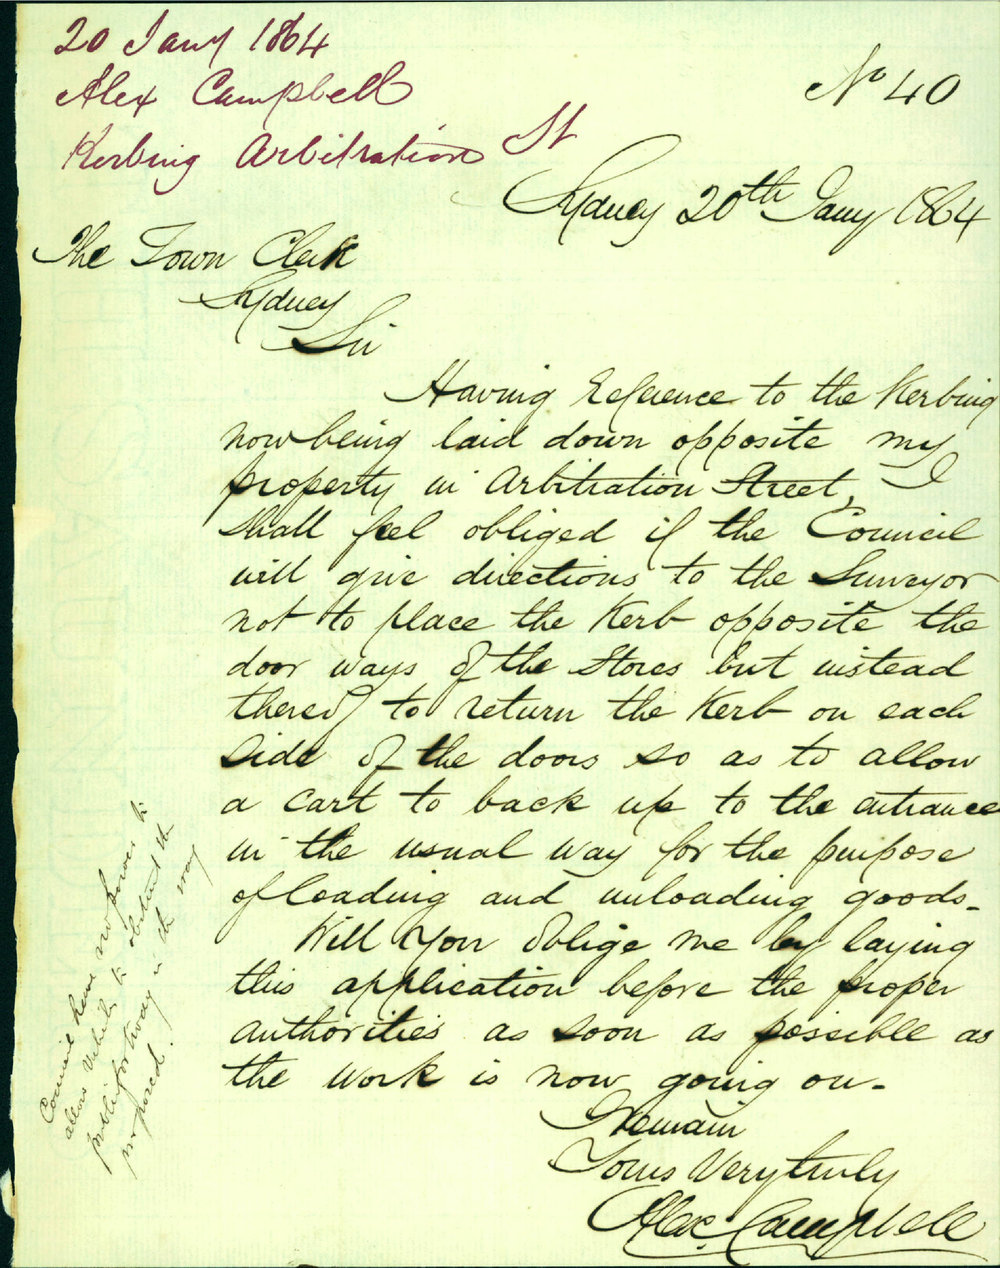 20 Jany 1864
Alex Campbell
Kerbing Arbitration St
No 40
Sydney 20th Jany 1864
The Town Clerk
Sydney
Sir
Having reference to the Kerbing
now being laid down opposite my
property in Arbitration Street, I
shall feel obliged if the Council
will give directions to the Surveyor
not to place the Kerb opposite the
door ways of the Stores but instead
thereof to return the Kerb on each
side of the doors so as to allow
a cart to back up to the entrance
in the usual way for the purpose
of loading and unloading goods.
Will you oblige me by laying
this application before the proper
authorities as soon as possible as
the work is now going on.
I remain
Yours Very truly
Alexr Campbell
Council have no power to
allow Vehicles to obstruct the
public footway in the way
proposed.